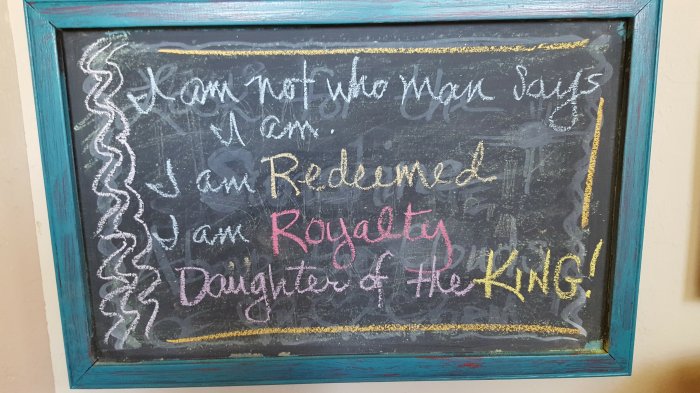 I am not who man says
I am.
I am Redeemed
I am Royalty
Daughter of the KING!